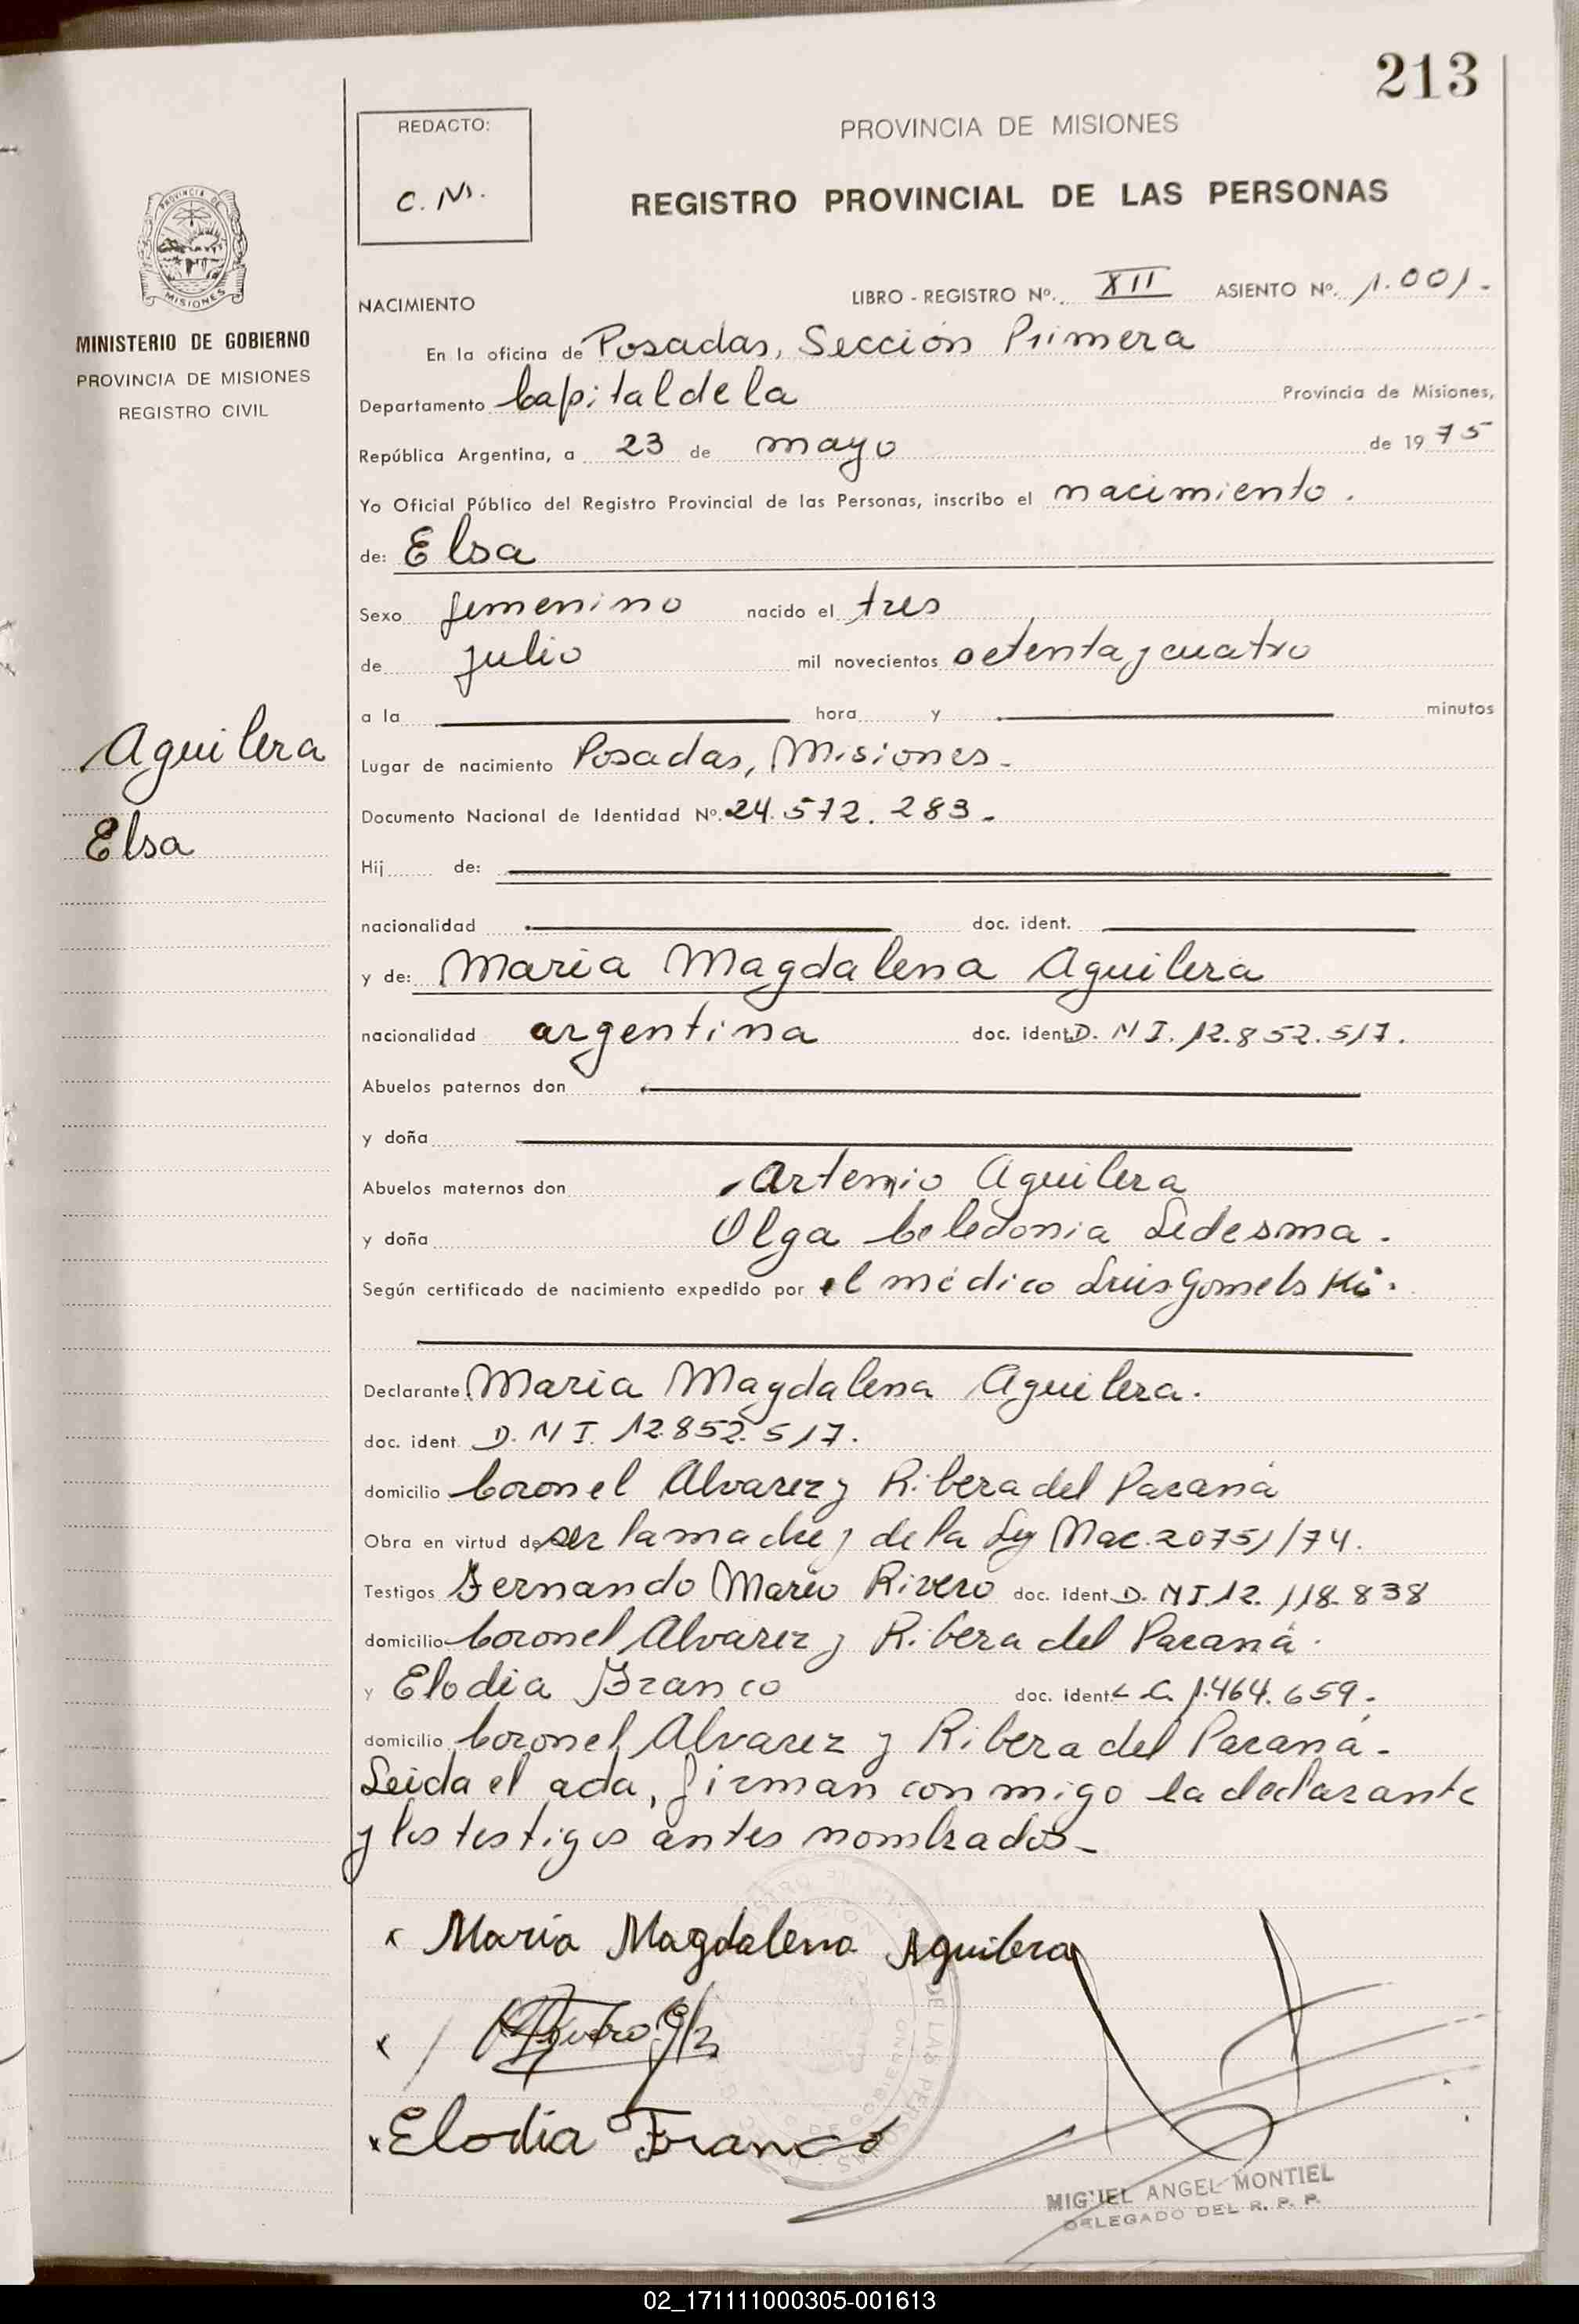 213
REDACTO:
C. M.
PROVINCIA DE MISIONES
REGISTRO PROVINCIAL DE LAS PERSONAS
PROVINCIA DE
MISIONES
MINISTERIO DE GOBIERNO
PROVINCIA DE MISIONES
REGISTRO CIVIL
Aguilera
Elsa
NACIMIENTO LIBRO - REGISTRO Nº. XII ASIENTO Nº. 1.001.-
En la oficina de Posadas, Sección Primera
Departamento Capital de la Provincia de Misiones,
República Argentina, a 23 de mayo de 1975
Yo Oficial Público del Registro Provincial de las Personas, inscribo el nacimiento.
de: Elsa
Sexo femenino nacido el tres
de julio mil novecientos setenta y cuatro
a la hora y minutos
Lugar de nacimiento Posadas, Misiones.-
Documento Nacional de Identidad Nº. 24.572.283.-
Hij de:
nacionalidad doc. ident.
y de: Maria Magdalena Aguilera
nacionalidad argentina doc. ident. D.N I. 12.852.517.
Abuelos paternos don
y doña
Abuelos maternos don Artemio Aguilera
y doña Olga Celedonia Ledesma.
Según certificado de nacimiento expedido por el médico Luis Gomelski.
Declarante Maria Magdalena Aguilera.
doc. ident. D.N I. 12.852.517.
domicilio Coronel Alvarez y Ribera del Paraná
Obra en virtud de ser la madre y de la Ley Nac. 20751/74.
Testigos Fernando Mario Rivero doc. ident. D.N I. 12.118.838
domicilio Coronel Alvarez y Ribera del Paraná.
y Elodia Franco doc. ident. L.C. 1.464.659.
domicilio Coronel Alvarez y Ribera del Paraná.-
Leida el acta, firman conmigo la declarante
y los testigos antes nombrados.-
Maria Magdalena Aguilera
Elodia Franco
MIGUEL ANGEL MONTIEL
DELEGADO DEL R. P. P.
02_171111000305-001613